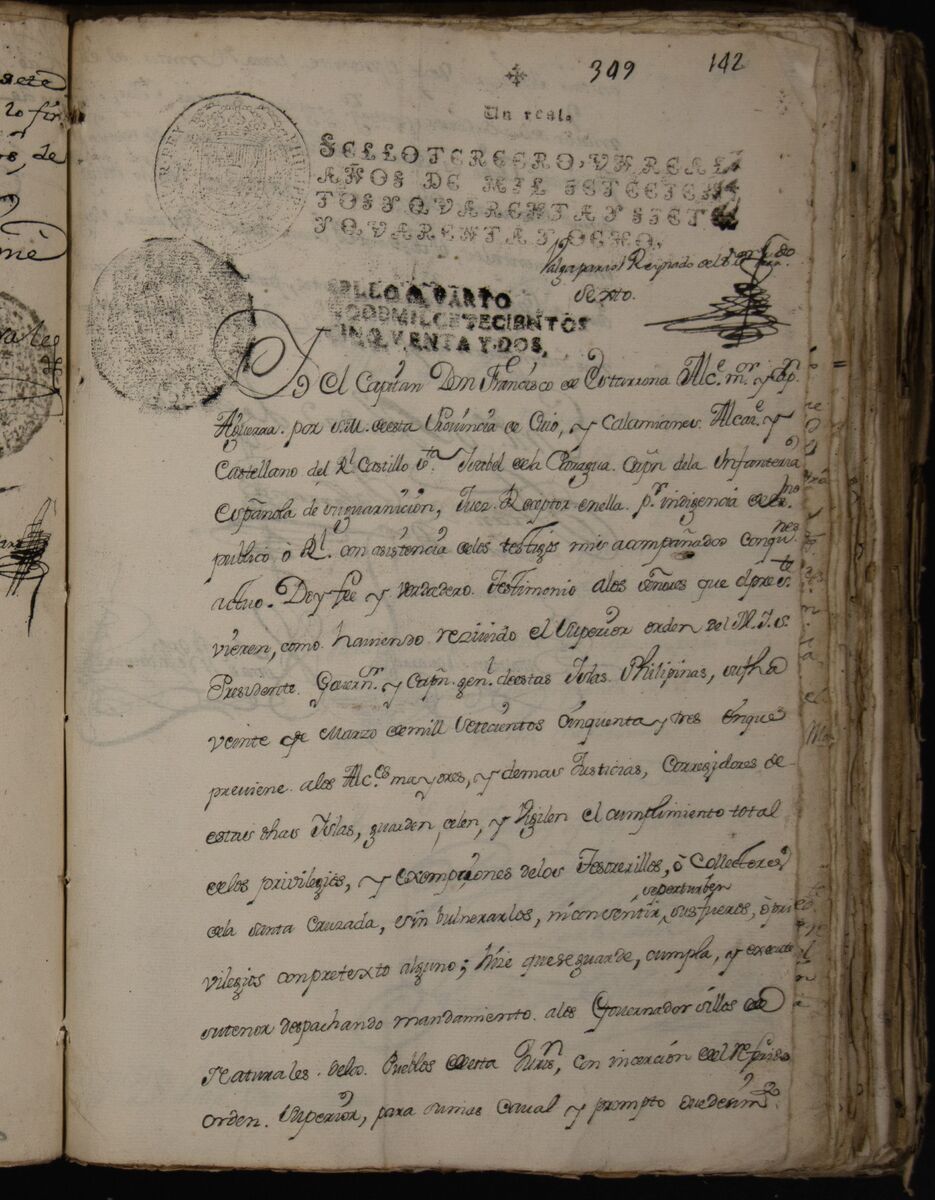 349 142
Un real.
SELLO TERCERO, VN REAL
AÑOS DE MIL SETECIEN
TOS Y QVARENTA Y SIETE
Y QVARENTA Y OCHO,
Valga para el Reynado de
Sexto.
SELLO QVARTO
AÑO DE MIL SETECIENTOS
CINQVENTA Y DOS,
El Capitan Don Francisco de Alc.e m.or y Cap.n
Aguerra. por S.M. de esta Provincia de Cuio, y Calamianes. Alcai.e y
Castellano del R.l Castillo S.ta Isabel de la Paragua. Capn. dela Infanteria
Española de su guarnicion, Juez Receptor en ella. p.r indigencia de es.no
publico ò R.l con asistencia de los testigos mis acompañados con qui.nes
actuo. Doy fee y verdadero testimonio a los señores que el pres.te
vieren, como haviendo recivido el Superior orden del M.I.S.
Presidente. Govern.or y Capn. gen.l de estas Islas Philipinas, su fha
veinte de Marzo de mill setecientos cinquenta y tres en que
previene. a los Alc.es mayores, y demas Justicias, Corregidores de
estas dhas Islas, guarden, celen, y vigilen el cumplimiento total
de los privilegios, y exempciones de los Tesorerillos, ò Collectores
de la Santa Cruzada, sin vulnerarlos, ni consentir, se perturben sus fueros, ò pri
vilegios con pretexto alguno; hize que se guarde, cumpla, y execute
su tenor despachando mandamiento. a los Governadorsillos de
Naturales. de los Pueblos de esta Juris.n, con incercion del referido
orden. Superior, para su mas caval y prompto